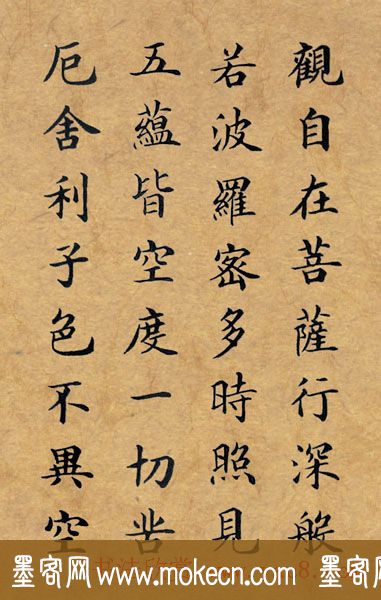 觀自在菩薩行深般
若波羅密多時照見
五蘊皆空度一切苦
厄舍利子色不異空
墨客网 www.mokecn.com 墨客